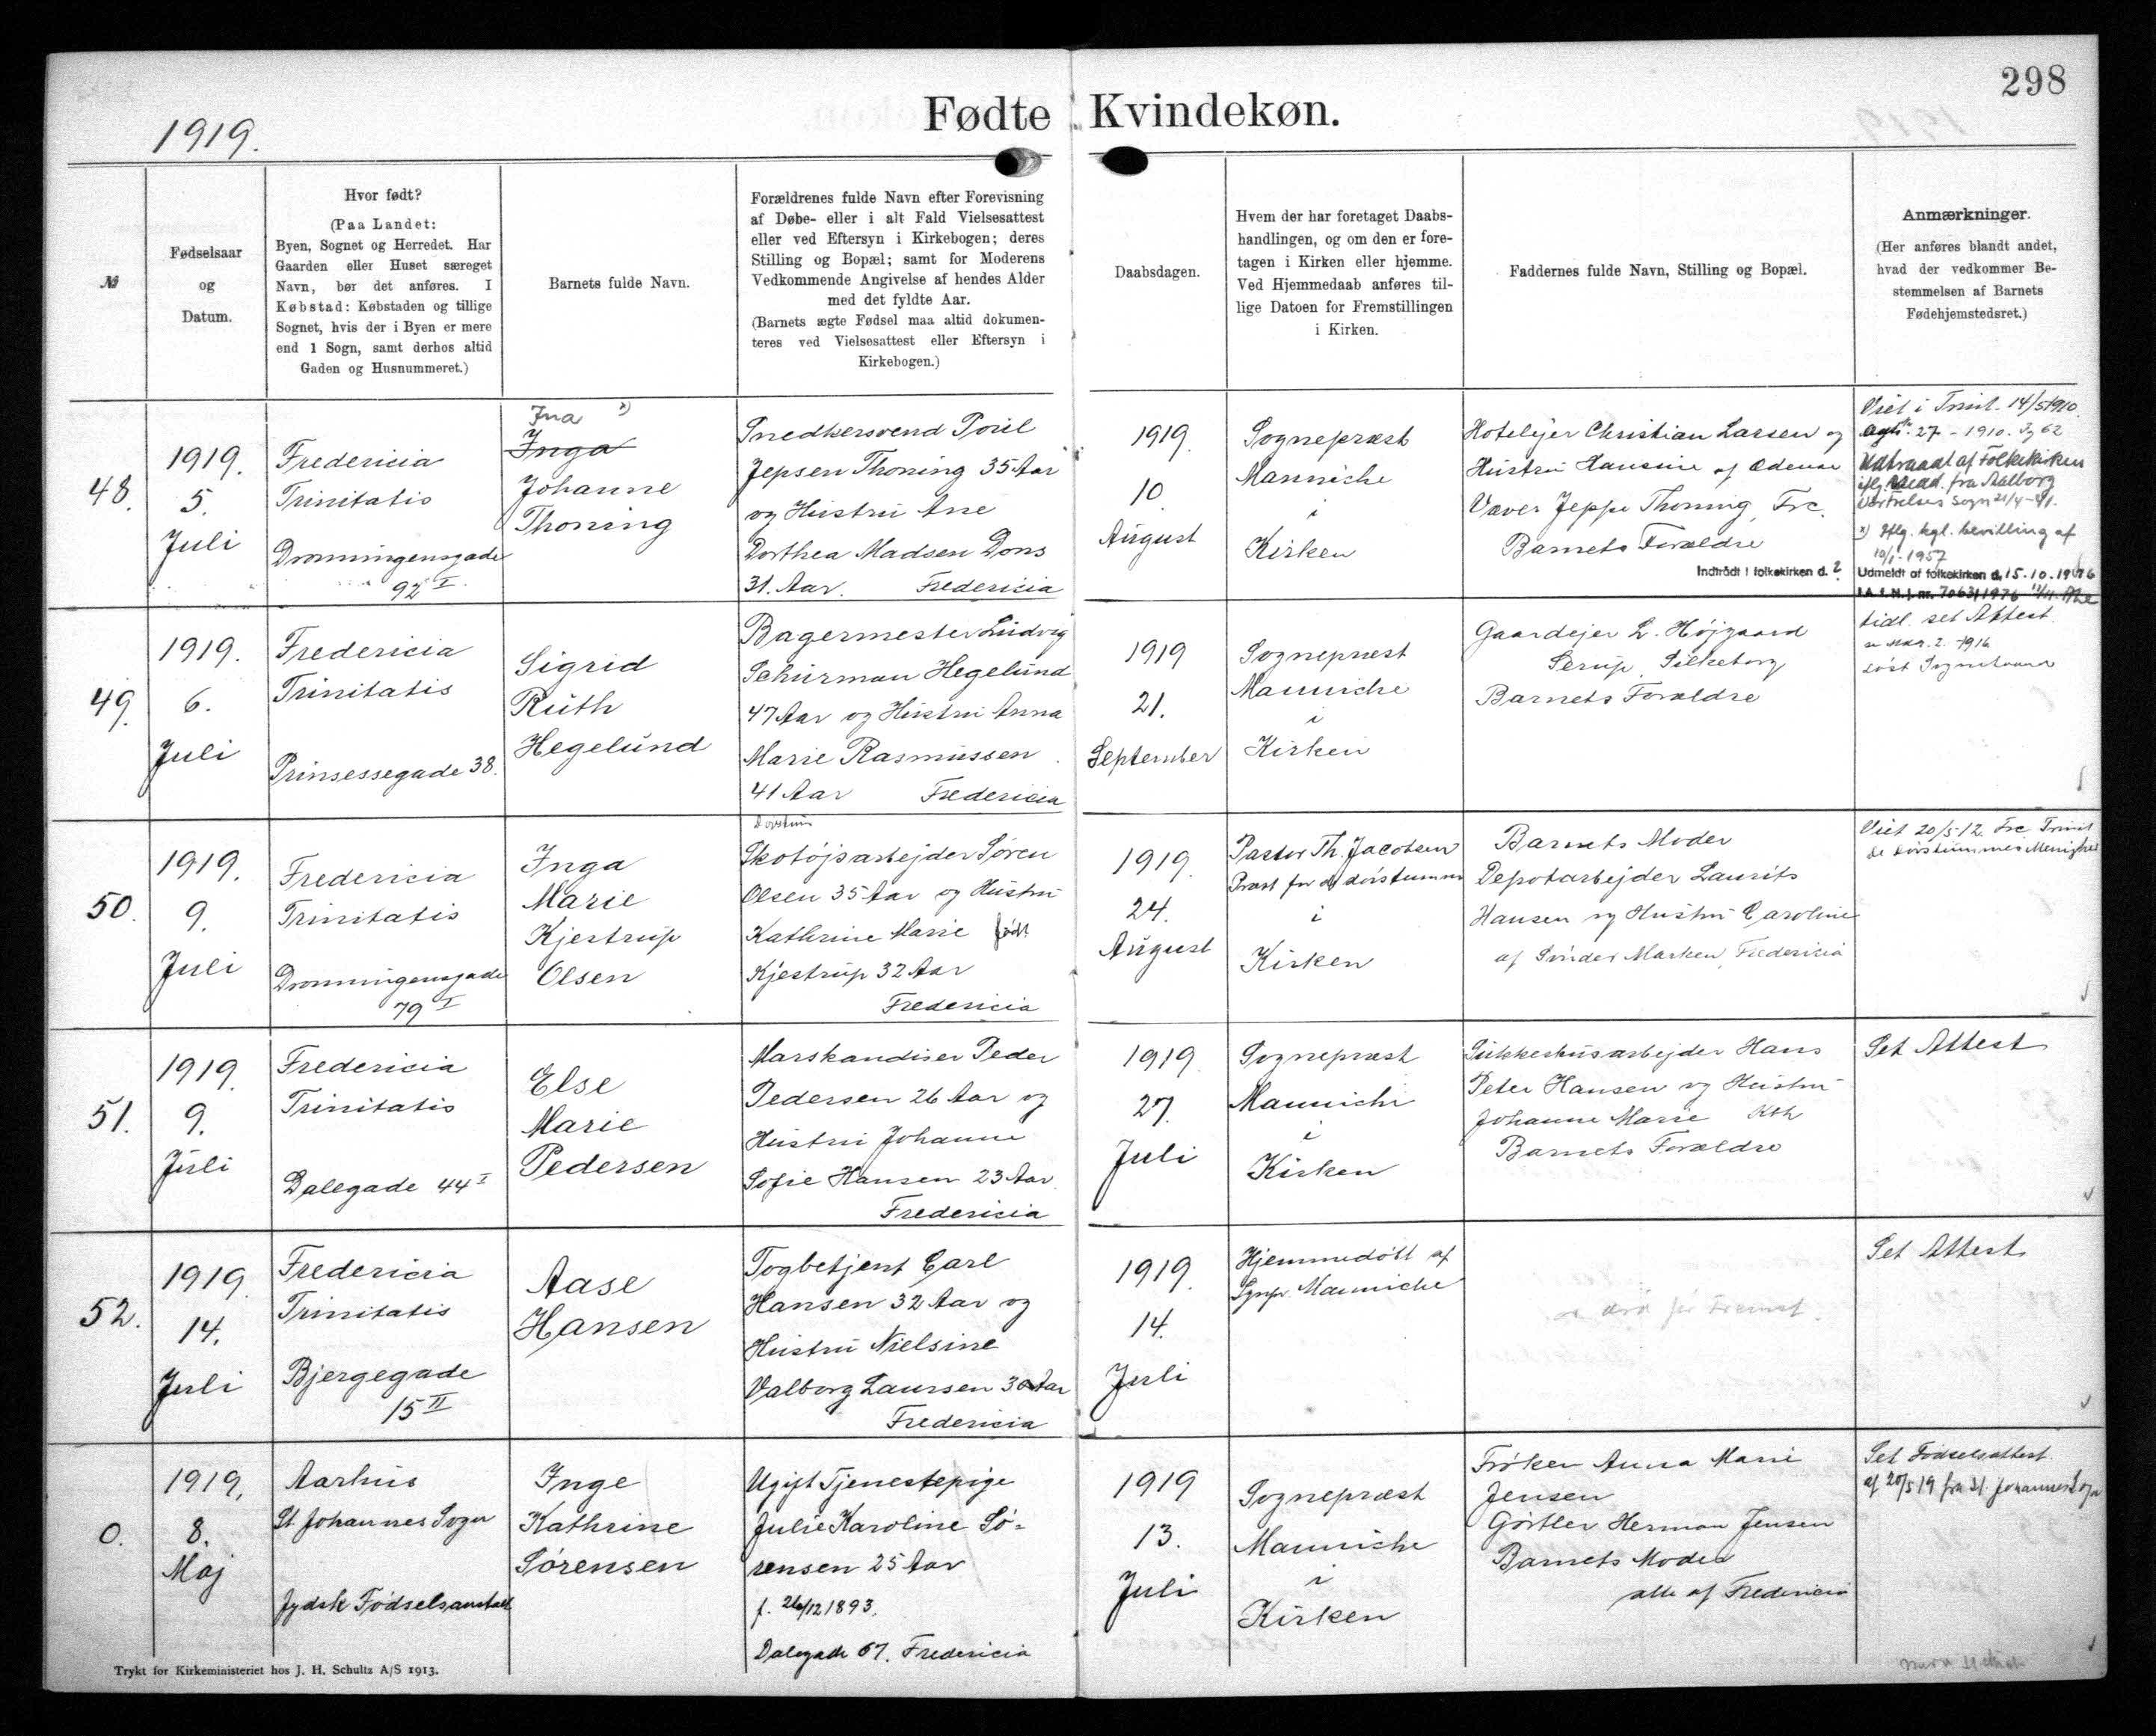 298
Fødte Kvindekøn.
1919.
№
Fødselsaar
og
Datum.
Hvor født?
(Paa Landet:
Byen, Sognet og Herredet. Har
Gaarden eller Huset særeget
Navn, bør det anføres. I
Købstad: Købstaden og tillige
Sognet, hvis der i Byen er mere
end 1 Sogn, samt derhos altid
Gaden og Husnummeret.)
Barnets fulde Navn.
Forældrenes fulde Navn efter Forevisning
af Døbe- eller i alt Fald Vielsesattest
eller ved Eftersyn i Kirkebogen; deres
Stilling og Bopæl; samt for Moderens
Vedkommende Angivelse af hendes Alder
med det fyldte Aar.
(Barnets ægte Fødsel maa altid dokumen-
teres ved Vielsesattest eller Eftersyn i
Kirkebogen.)
Daabsdagen.
Hvem der har foretaget Daabs-
handlingen, og om den er fore-
tagen i Kirken eller hjemme.
Ved Hjemmedaab anføres til-
lige Datoen for Fremstillingen
i Kirken.
Faddernes fulde Navn, Stilling og Bopæl.
Anmærkninger.
(Her anføres blandt andet,
hvad der vedkommer Be-
stemmelsen af Barnets
Fødehjemstedsret.)
48.
1919.
5.
Juli
Fredericia
Trinitatis
Dronningensgade
92 I.
Ina x)
Inga
Johanne
Thoning
Snedkersvend Poul
Jepsen Thoning 35 Aar
og Hustru Ane
Dorthea Madsen Dons
31. Aar. Fredericia
1919.
10.
August
Sognepræst
Manniche
i
Kirken
Hotelejer Christian Larsen og
Hustru Hansine af Odense
Væver Jeppe Thoning, Frc.
Barnets Forældre
Indtrådt i folkekirken d. 2
Viet i Trinit. 14/5 1910.
27 - 1910. 62
Udtraadt af Folkekirken
iflg. Medd. fra Aalborg
Vor Frelsers Sogn 21/4-41.
x) Iflg. kgl. bevilling af
10/1-1957
Udmeldt af folkekirken d. 15.10.1976
I.A. f. N. j. nr. 7063/1976
49.
1919.
6.
Juli
Fredericia
Trinitatis
Prinsessegade 38.
Sigrid
Ruth
Hegelund
Bagermester Ludvig
Schurman Hegelund
47 Aar og Hustru Anna
Marie Rasmussen
41 Aar Fredericia
1919
21.
September
Sognepræst
Manniche
i
Kirken
Gaardejer L. Højgaard
Serup, Silkeborg
Barnets Forældre
tidl. set Attest.
2.-1916
50.
1919.
9.
Juli
Fredericia
Trinitatis
Dronningensgade
79 I
Inga
Marie
Kjestrup
Olsen
Døvstum
Skotøjsarbejder Søren
Olsen 35 Aar og Hustru
Kathrine Marie født
Kjestrup 32 Aar
Fredericia
1919.
24.
August
Pastor Th. Jacobsen
Præst for de døvstumme
i
Kirken
Barnets Moder
Depotarbejder Laurits
Hansen og Hustru Caroline
af Sønder Marken, Fredericia
Viet 20/5-12. Frc. Trinit
de døvstummes Menighed
51.
1919.
9.
Juli
Fredericia
Trinitatis
Dalegade 44 I
Else
Marie
Pedersen
Marskandiser Peder
Pedersen 26 Aar og
Hustru Johanne
Sofie Hansen 23 Aar
Fredericia
1919.
27.
Juli
Sognepræst
Manniche
i
Kirken
Sukkerhusarbejder Hans
Peter Hansen og Hustru
Johanne Marie Kbh
Barnets Forældre
Set Attest
52.
1919
14.
Juli
Fredericia
Trinitatis
Bjergegade
15 II
Aase
Hansen
Togbetjent Carl
Hansen 32 Aar og
Hustru Nielsine
Valborg Laursen 30 Aar
Fredericia
1919.
14.
Juli
Hjemmedøbt af
Sgnp. Manniche
død før Fremst.
Set Attest
0.
1919.
8.
Maj
Aarhus
St. Johannes Sogn
Jydsk Fødselsanstalt
Inge
Kathrine
Sørensen
Ugift Tjenestepige
Julie Karoline Sø-
rensen 25 Aar
f. 26/12 1893.
Dalegade 67. Fredericia
1919
13.
Juli
Sognepræst
Manniche
i
Kirken
Frøken Anna Marie
Jensen
Gørtler Herman Jensen
Barnets Moder
alle af Fredericia
Set Fødselsattest
af 20/5 19 fra St. Johannes Sogn
Trykt for Kirkeministeriet hos J. H. Schultz A/S 1913.